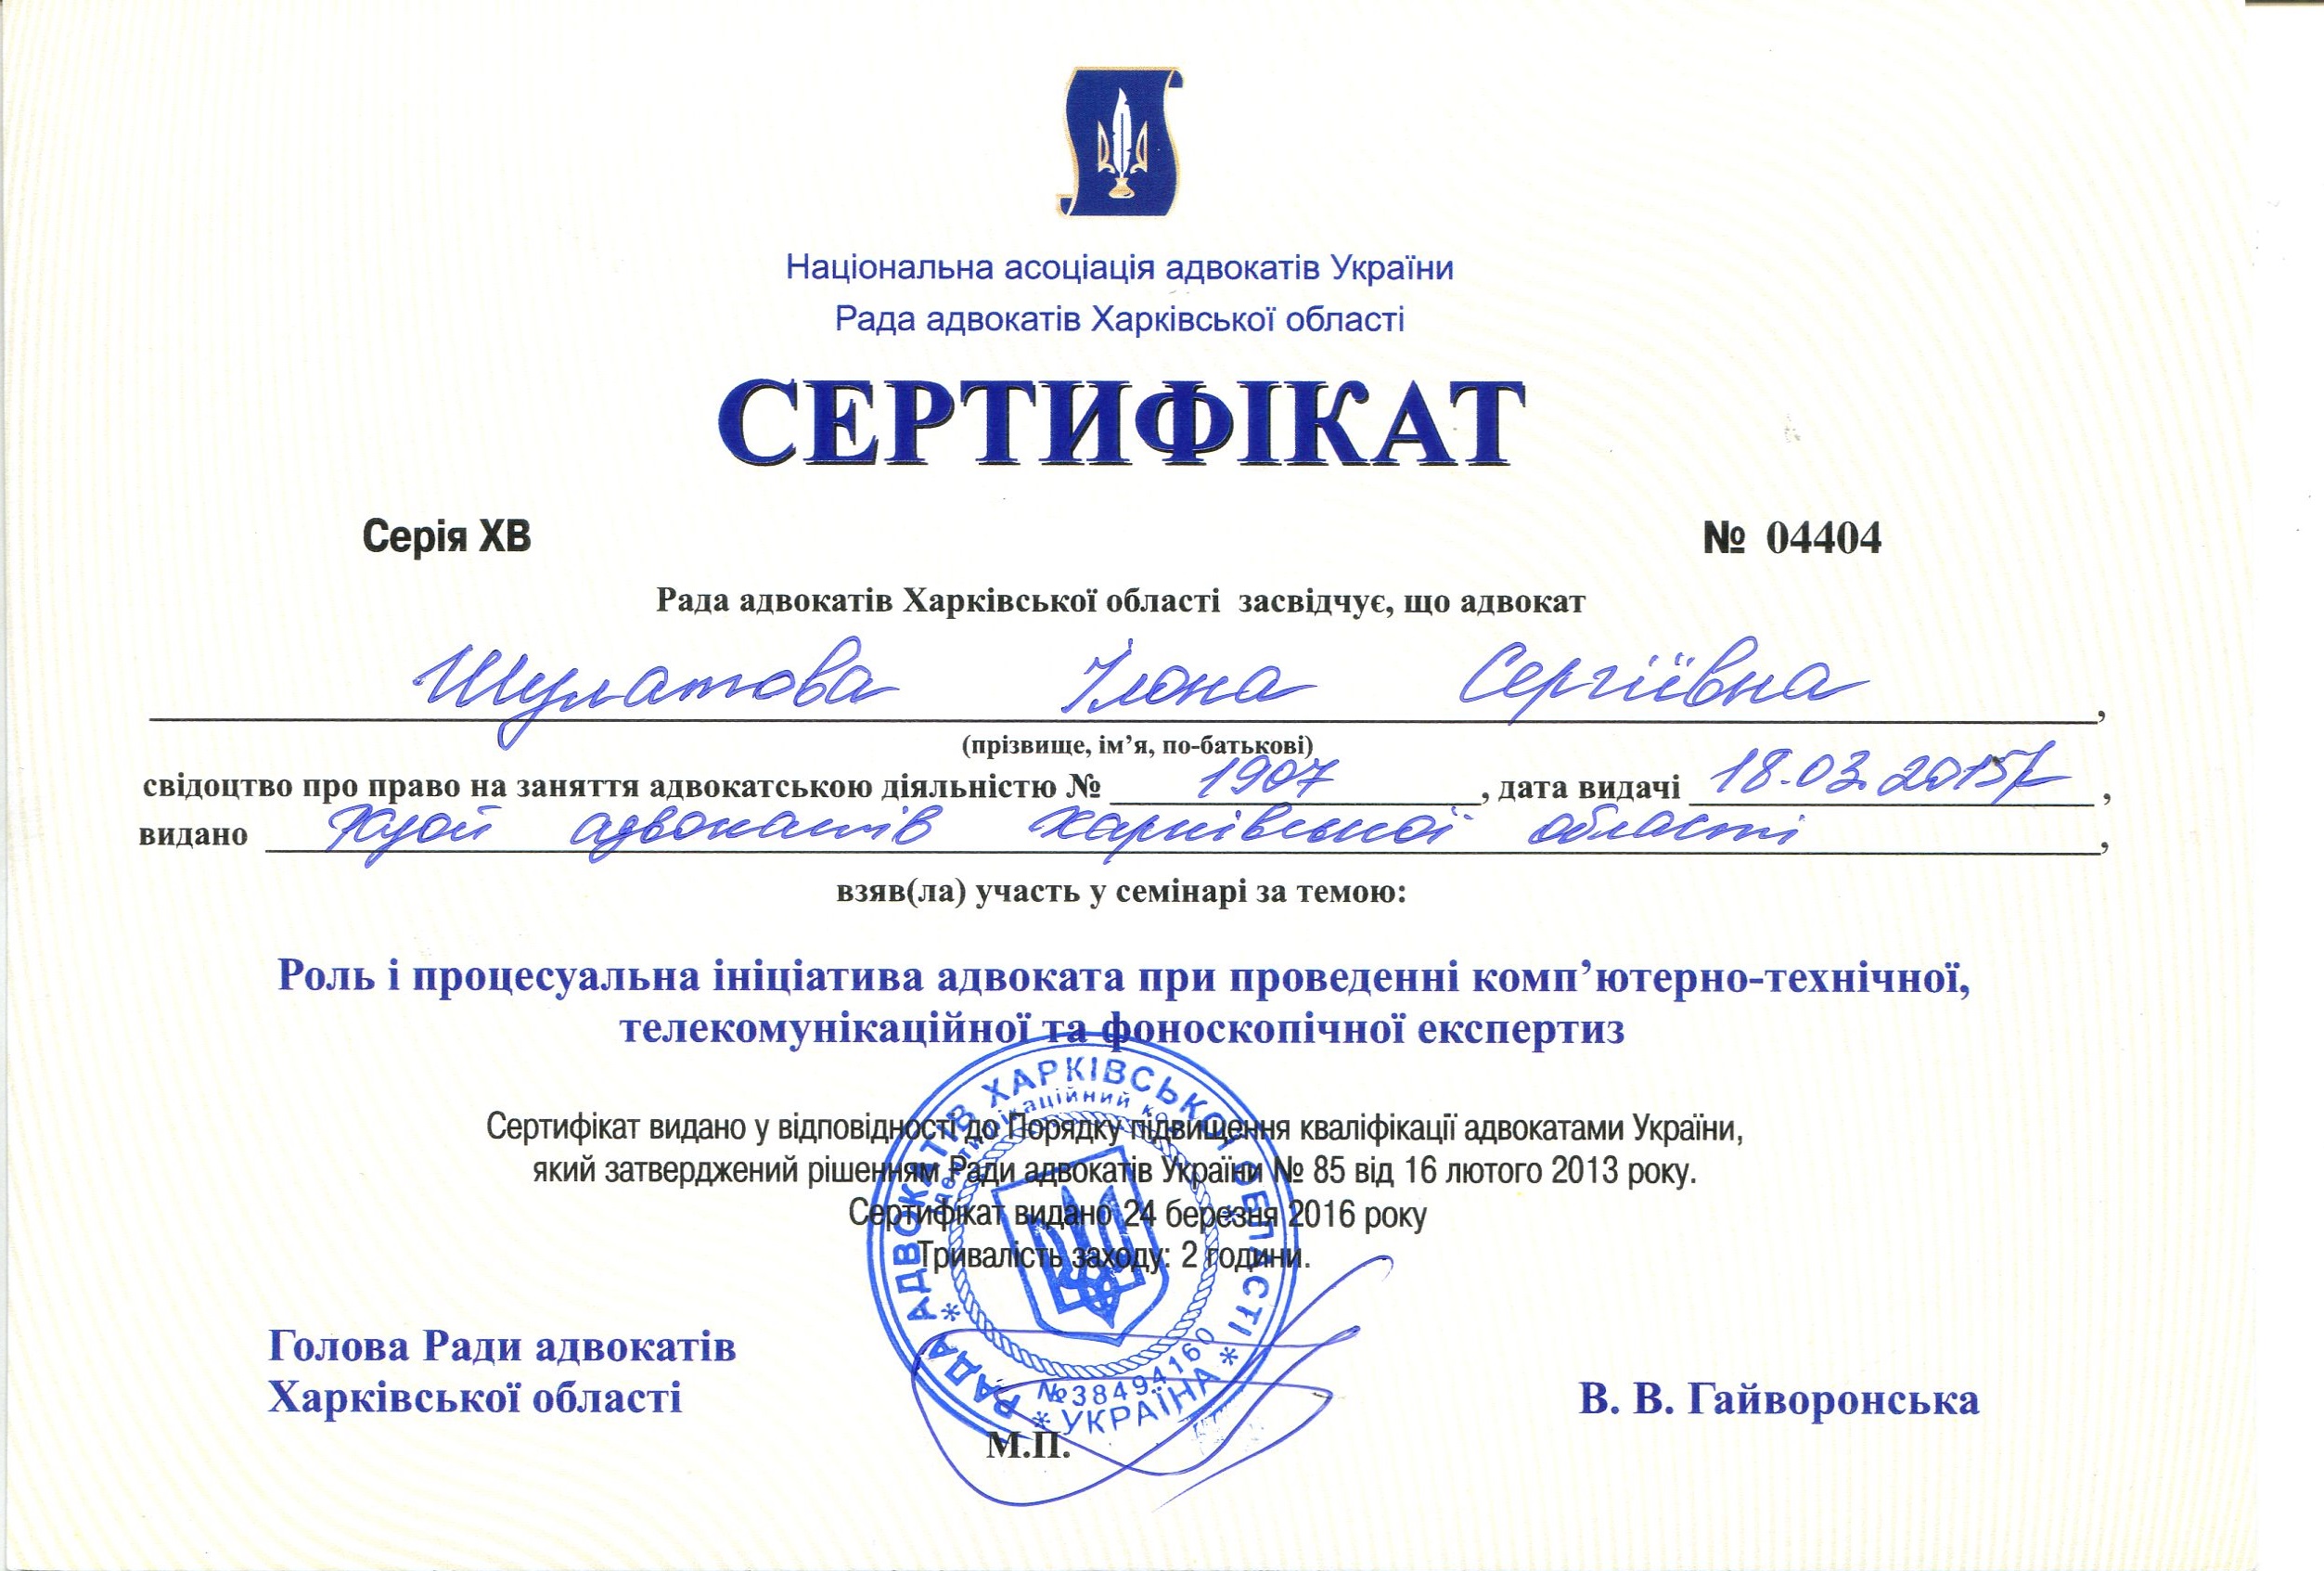 Національна асоціація адвокатів України
Рада адвокатів Харківської області
СЕРТИФІКАТ
Серія ХВ № 04404
Рада адвокатів Харківської області засвідчує, що адвокат
Шулатова Ілона Сергіївна,
(прізвище, ім’я, по-батькові)
свідоцтво про право на заняття адвокатською діяльністю № 1907, дата видачі 18.03.2015,
видано адвокатів Харківської області,
взяв(ла) участь у семінарі за темою:
Роль і процесуальна ініціатива адвоката при проведенні комп’ютерно-технічної,
телекомунікаційної та фоноскопічної експертиз
Сертифікат видано у відповідності до Порядку підвищення кваліфікації адвокатами України,
який затверджений рішенням Ради адвокатів України № 85 від 16 лютого 2013 року.
Сертифікат видано 24 березня 2016 року
Тривалість заходу: 2 години.
РАДА АДВОКАТІВ ХАРКІВСЬКОЇ ОБЛАСТІ
ідентифікаційний код
№38494160
* УКРАЇНА *
Голова Ради адвокатів
Харківської області
В. В. Гайворонська
М.П.